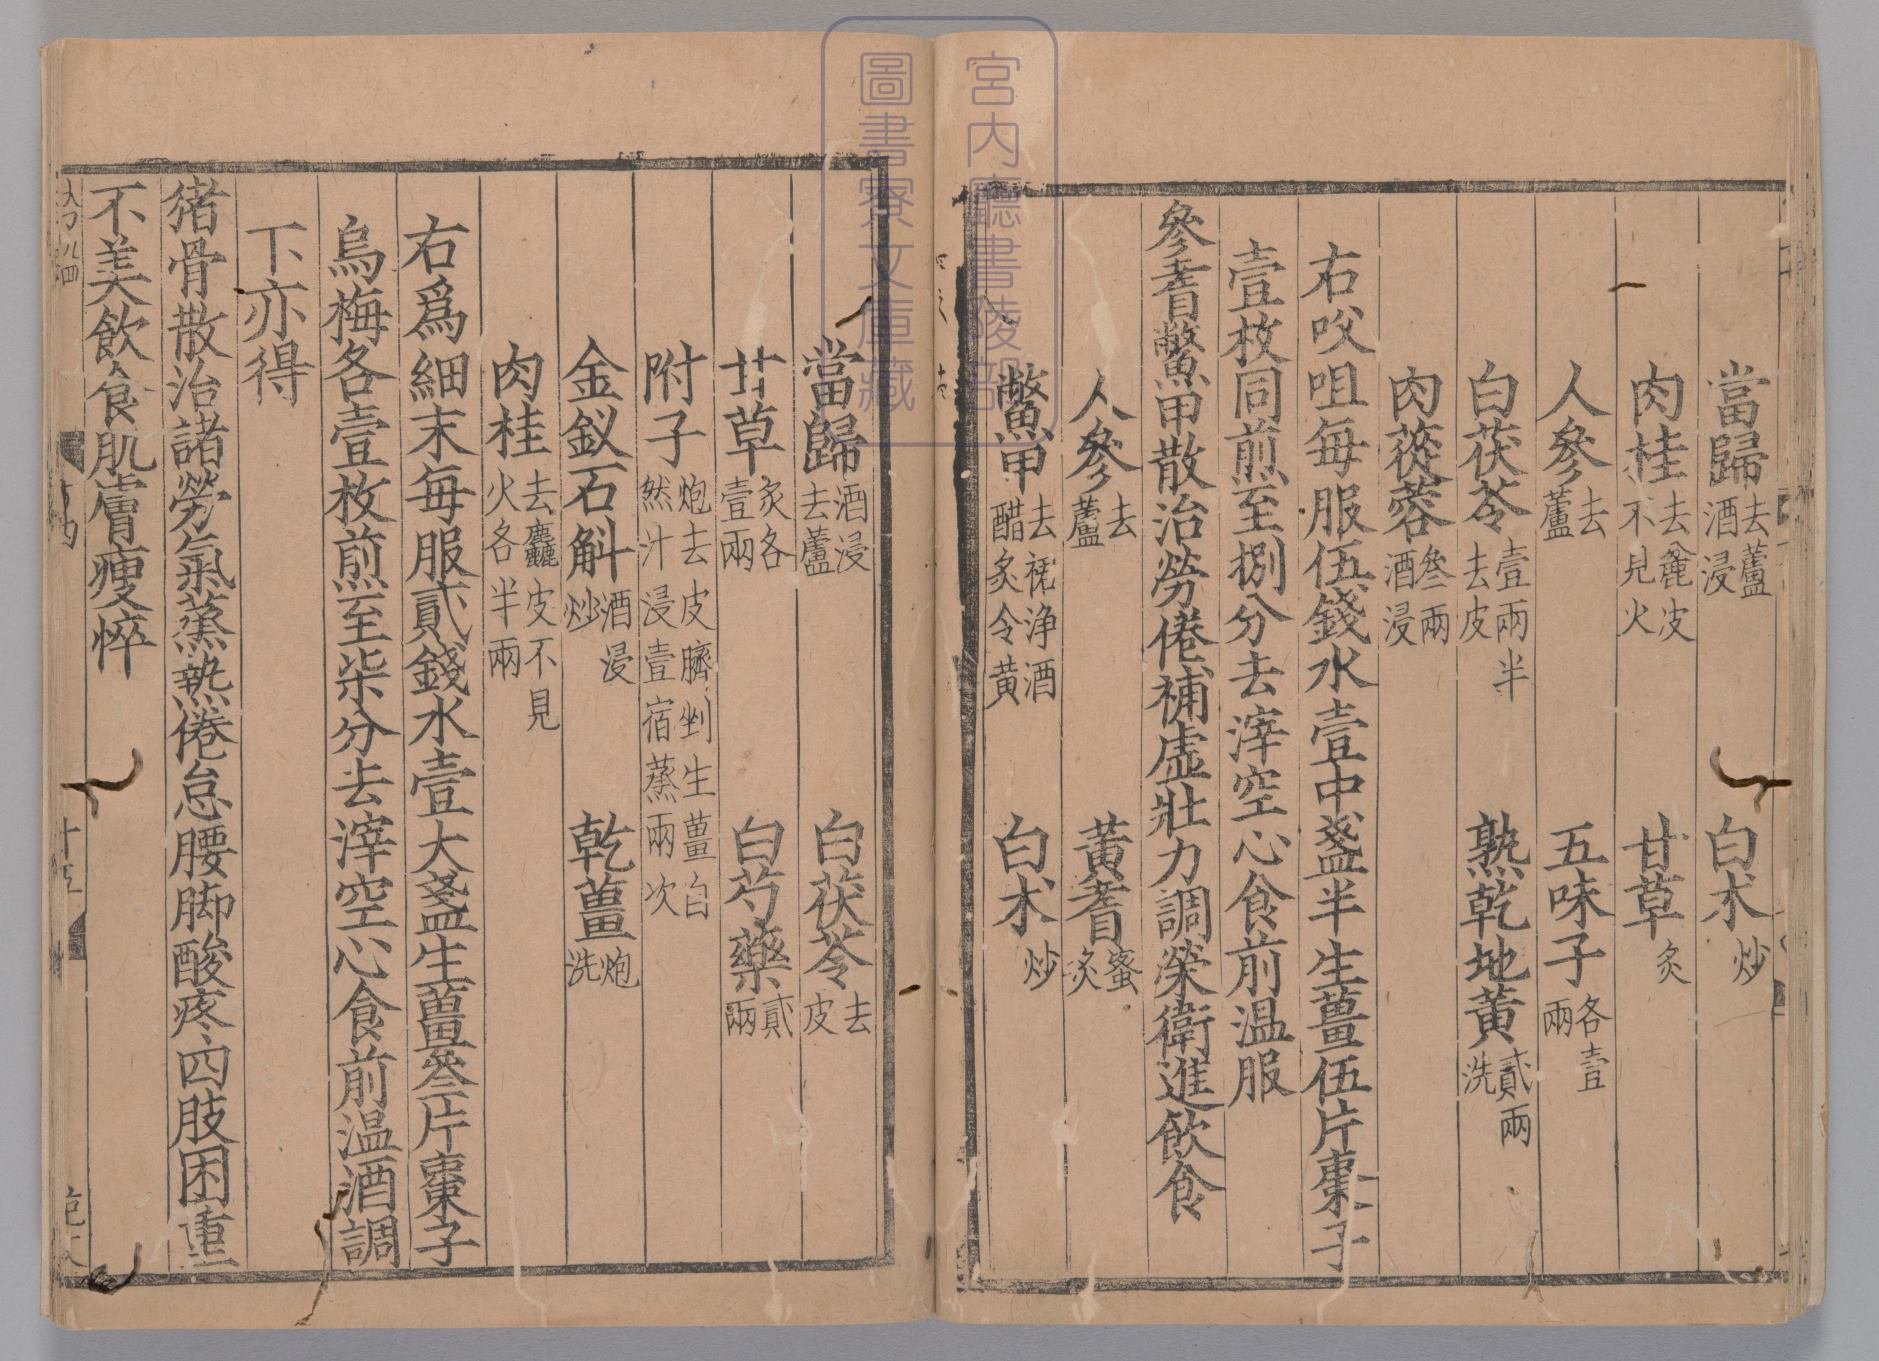 當歸去蘆酒浸 白朮炒
肉桂去麄皮不見火 甘草炙
人參去蘆 五味子各壹兩
白茯苓壹兩半去皮 熟乾地黃貳兩洗
肉蓯蓉叁兩酒浸
右㕮咀每服伍錢水壹中盞半生薑伍片棗子
壹枚同煎至捌分去滓空心食前温服
參耆鱉甲散治勞倦補虛壯力調榮衛進飲食
人參去蘆 黃耆蜜炙
鱉甲去裙浄酒醋炙令黃 白朮炒
當歸酒浸去蘆 白茯苓去皮
甘草炙各壹兩 白芍藥貳兩
附子炮去皮臍剉生薑自然汁浸壹宿蒸兩次
金釵石斛酒浸炒 乾薑炮洗
肉桂去麤皮不見火各半兩
右爲細末每服貳錢水壹大盞生薑叁片棗子
烏梅各壹枚煎至柒分去滓空心食前温酒調
下亦得
猪骨散治諸勞氣蒸熱倦怠腰脚酸疼四肢困重
不美飲食肌膚瘦悴
十五
宮内廳書陵部
圖書寮文庫藏